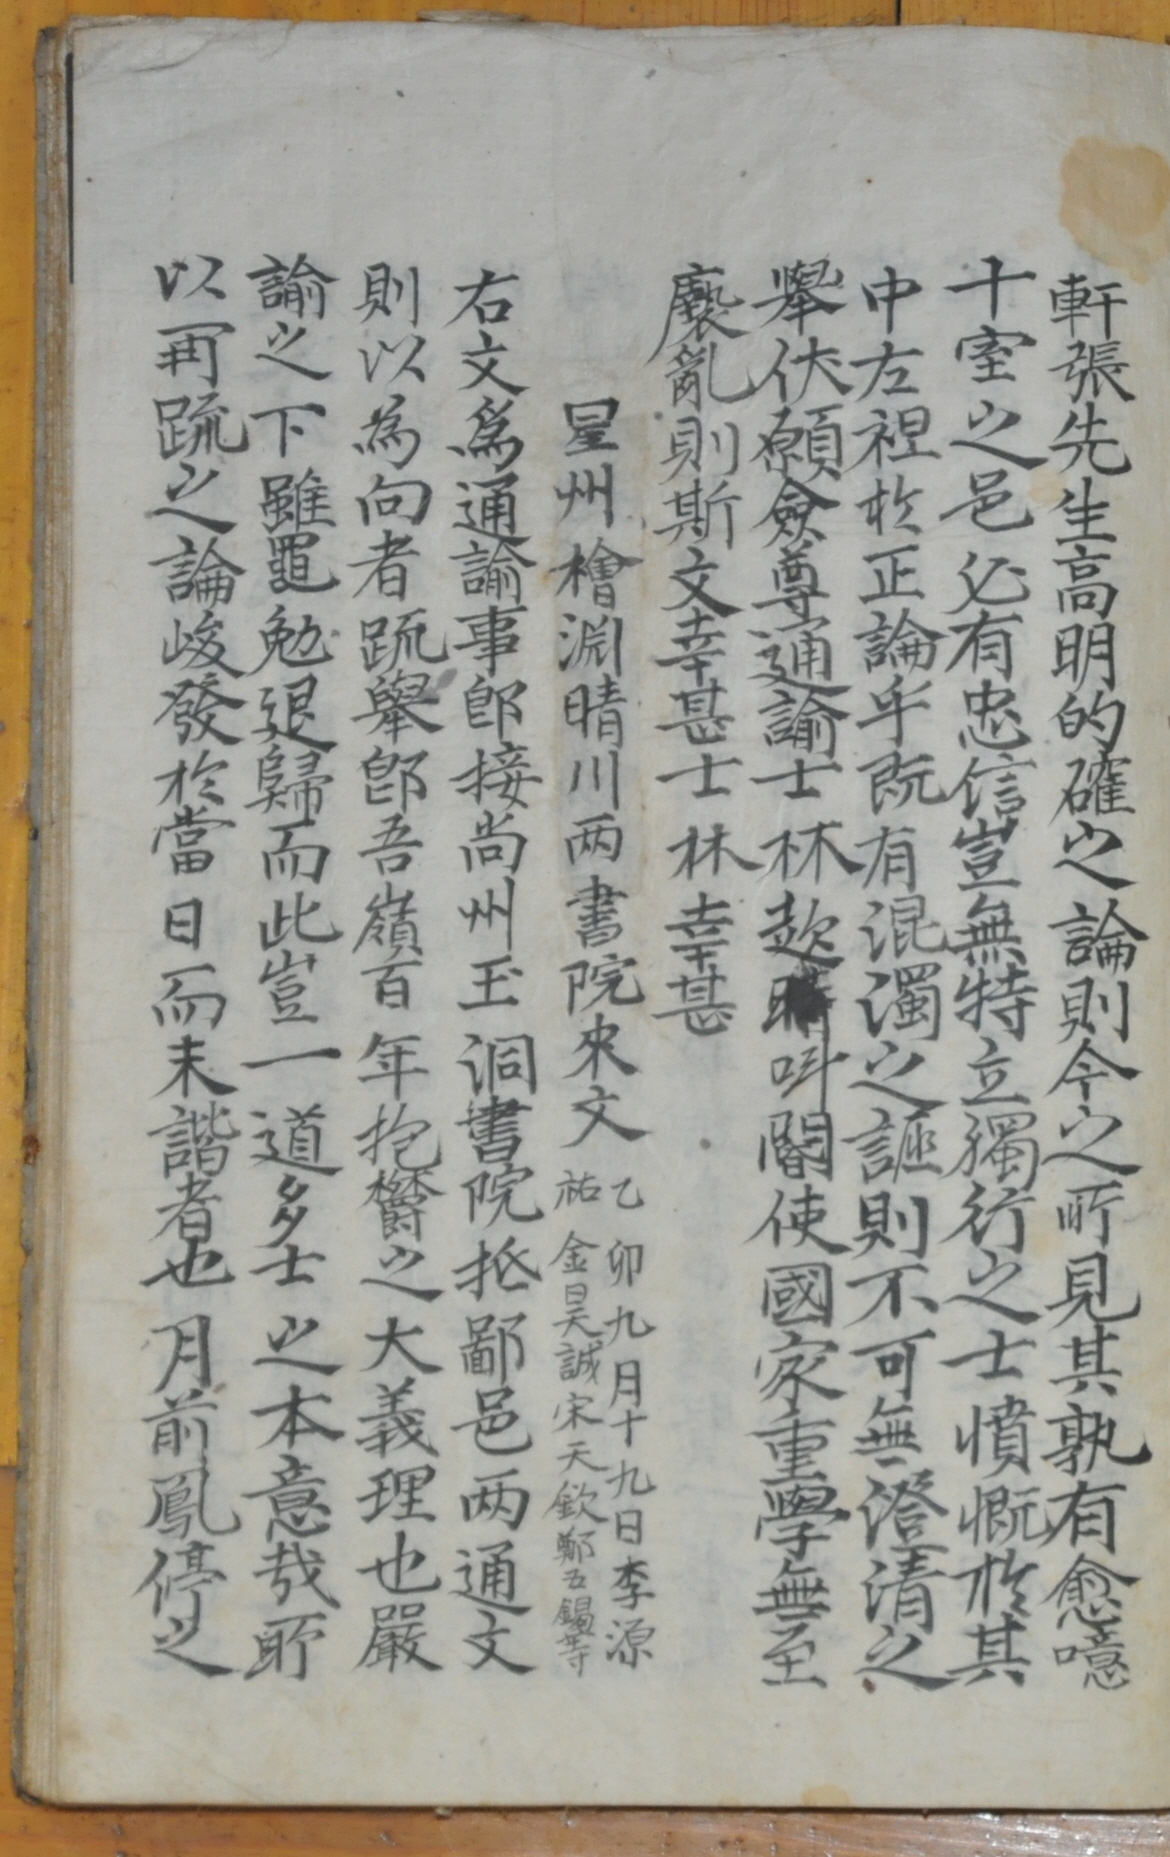 軒張先生高明的確之論則今之所見其孰有愈噫
十室之邑必有忠信豈無特立獨行之士憤慨於其
中左袒於正論乎旣有混濁之誣則不可無澄清之
擧伏願僉尊通諭士林趂叫閽使國家重學無至
褻亂則斯文幸甚士林幸甚
星州檜淵晴川两書院來文
乙卯九月十九日李源
祐金昊誠宋天欽鄭五錫等
右文爲通諭事卽接尙州玉洞書院抵鄙邑两通文
則以為向者䟽擧卽吾嶺百年抱欝之大義理也嚴
諭之下雖黽勉退歸而此豈一道多士之本意哉所
以再䟽之論峻發於當日而未諧者也月前鳳停之